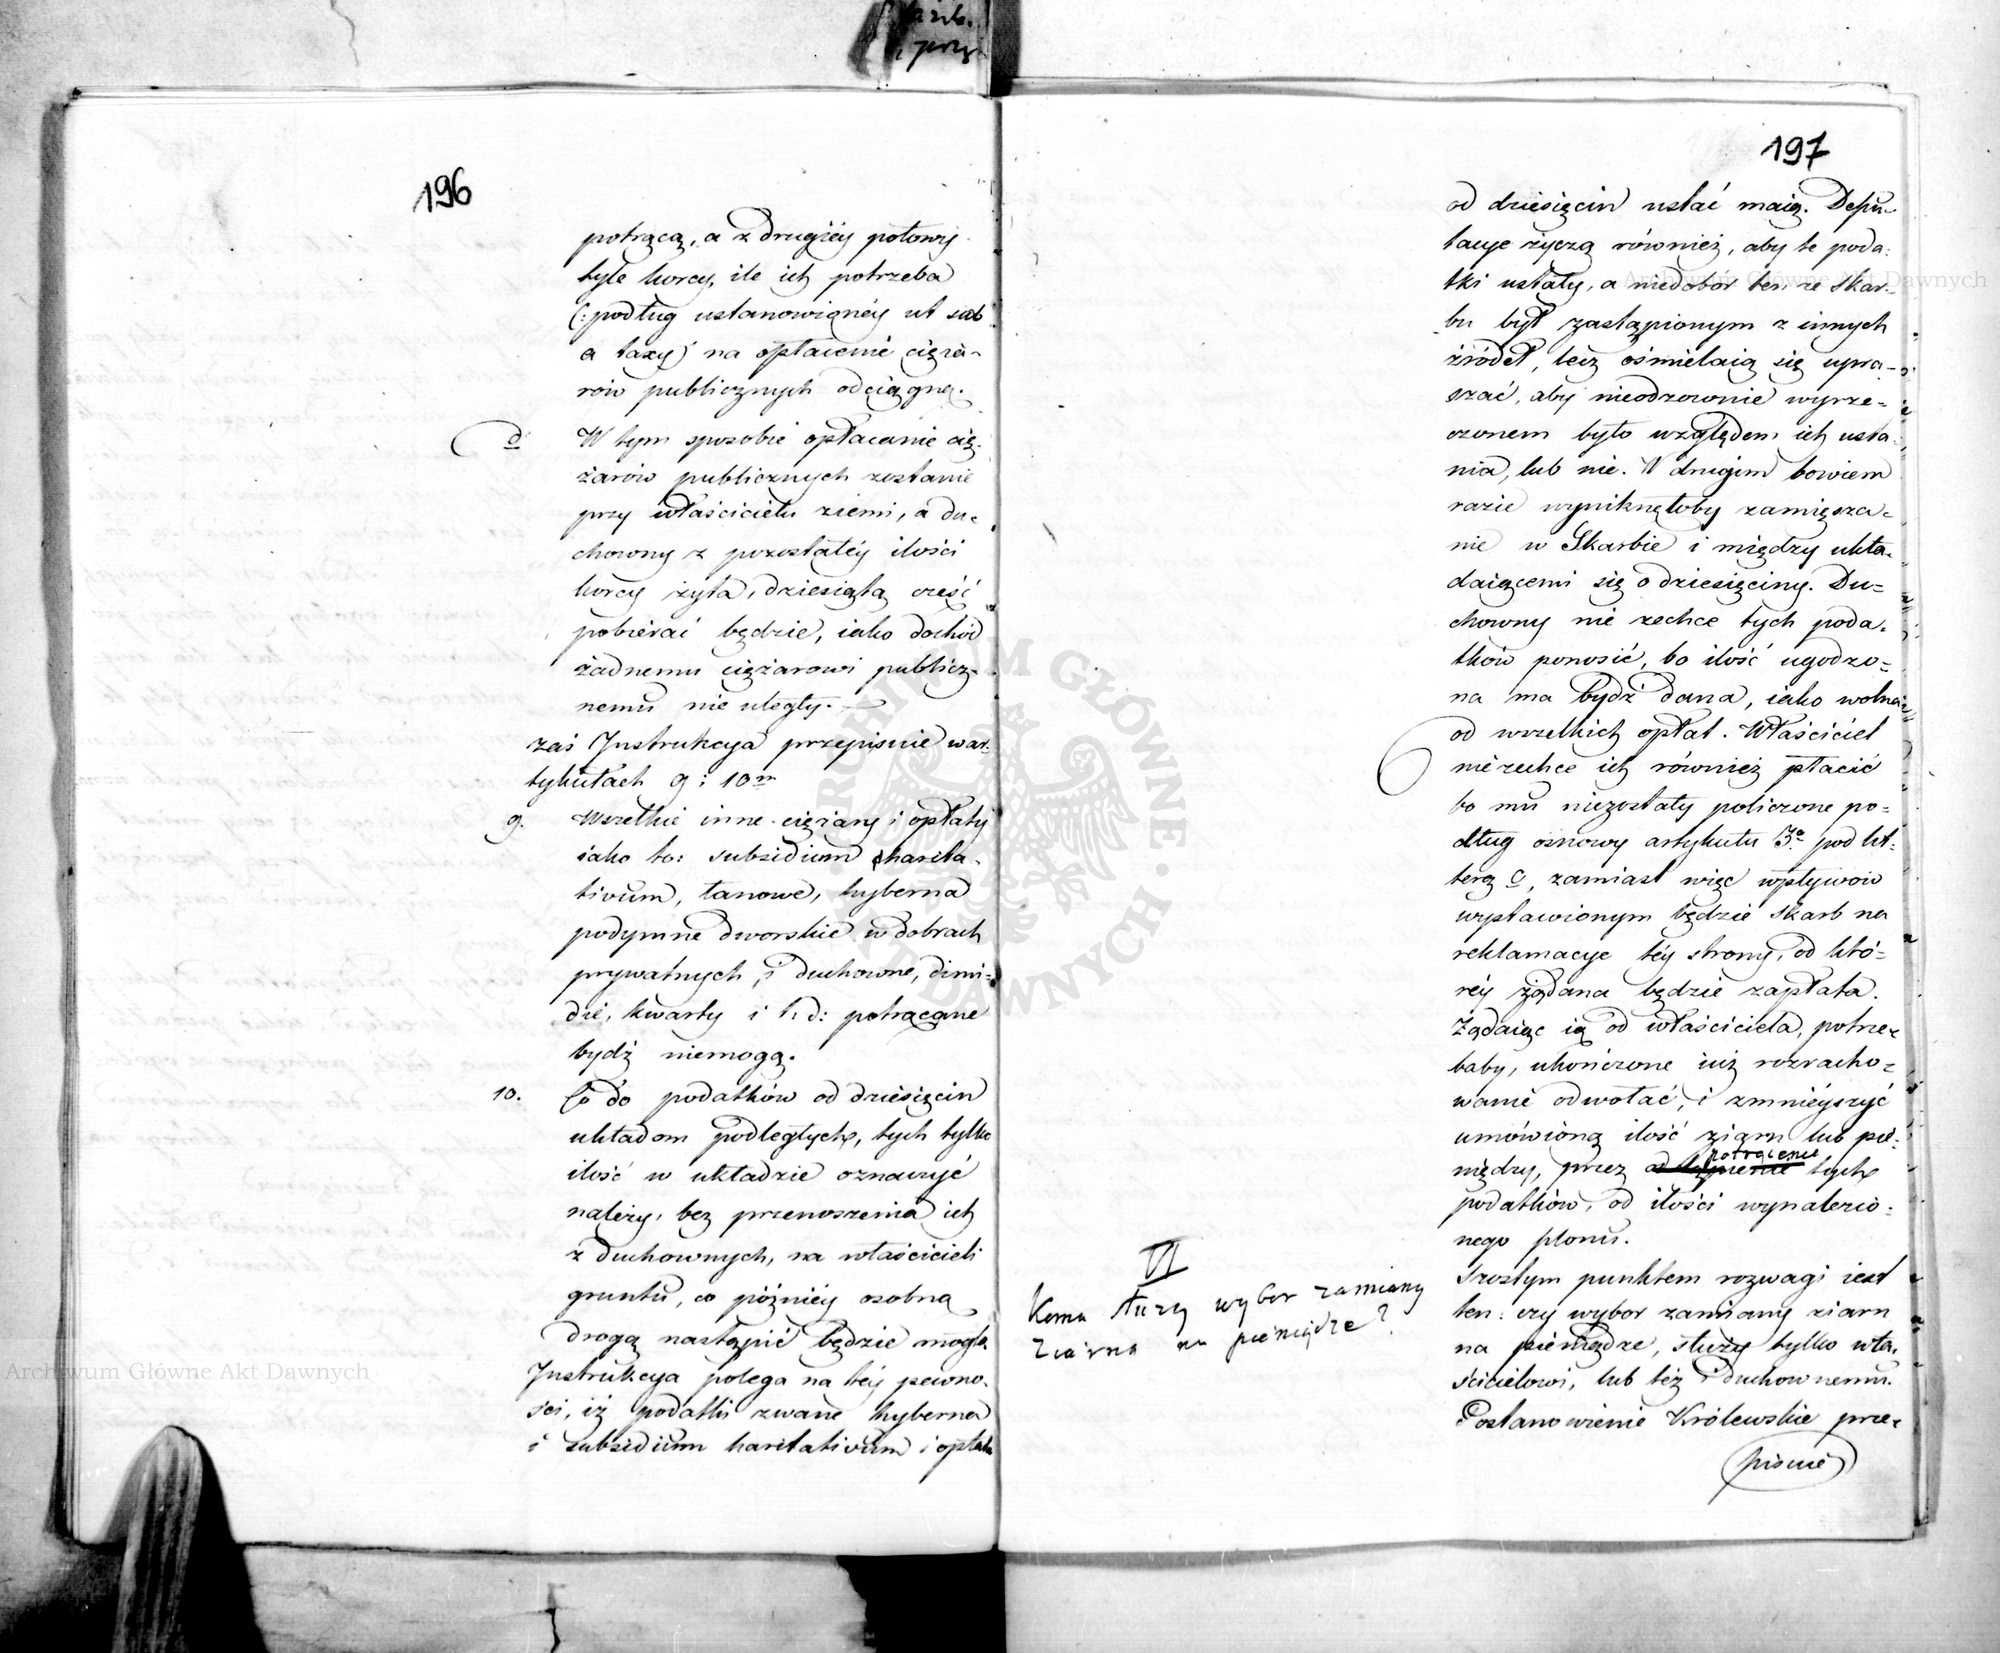 196
potrącą, a z drugiéy połowy
tyle korcy, ile ich potrzeba
(: podług ustanowionéy ut sub
a taxy) na opłacenie cięża-
rów publicznych odciągną.
d W tym sposobie opłacanie cię-
żarów publicznych zostanie
przy właścicielu ziemi, a du-
chowny z pozostałéy ilości
korcy żyta, dziesiątą część
pobierać będzie, iako dochód
żadnemu ciężarowi publicz-
nemu nie uległy.
zaś Instrukcya przepisuie w ar-
tykułach 9 i 10m
9. Wszelkie inne ciężary i opłaty
iako to: subsidium charita-
tivum, łanowe, hyberna
podymne dworskie w dobrach
prywatnych, i duchowne, dimi-
die, kwarty i t. d: potrącane
bydź niemogą.
10. Co do podatków od dziesięcin
układom podległych, tych tylko
ilość w układzie oznaczyć
należy, bez przenoszenia ich
z duchownych, na właścicieli
gruntu, co późniéy osobną
drogą nastąpić będzie mogło.
Instrukcya polega na téy pewno-
ści, iż podatki zwane hyberna
i subsidium haritativum i opłata
197
od dziesięcin ustać maią. Depu-
tacye życzą również, aby te poda-
tki ustały, a niedobór ten ze skar-
bu był zastąpionym z innych
źródeł, lecz ośmielaią się upra-
szać, aby nieodzownie wyrze-
czonem było względem ich usta-
nia, lub nie. W drugim bowiem
razie wyniknęłoby zamiesza-
nie w Skarbie i między ukła-
daiącemi się o dziesięciny. Du-
chowny nie zechce tych poda-
tków ponosić, bo ilość ugodzo-
na ma bydź dana, iako wolna
od wszelkich opłat. Właściciel
nie zechce ich również płacić
bo mu niezostały policzone po-
dług osnowy artykułu 3o pod lit-
terą c, zamiast więc wpływów
wystawionym będzie skarb na
reklamacye téy strony, od któ-
réy żądana będzie zapłata.
Żądaiąc ią od właściciela, potrze-
baby, ukończone iuż rozracho-
wanie odwołać, i zmnieyszyć
umówioną ilość ziarn lub pie-
niędzy, przez potrącenie tych
podatków, od ilości wynalezio-
nego plonu.
VI
Komu służy wybor zamiany
ziarna na pieniądze?
Szostym punktem rozwagi iest
ten: czy wybor zamiany ziarn
na pieniądze, służy tylko wła-
ścicielowi, lub téż i duchownemu.
Postanowienie Królewskie prze-
pisuie
Archiwum Główne Akt Dawnych
Archiwum Główne Akt Dawnych
ARCHIWUM GŁÓWNE AKT DAWNYCH